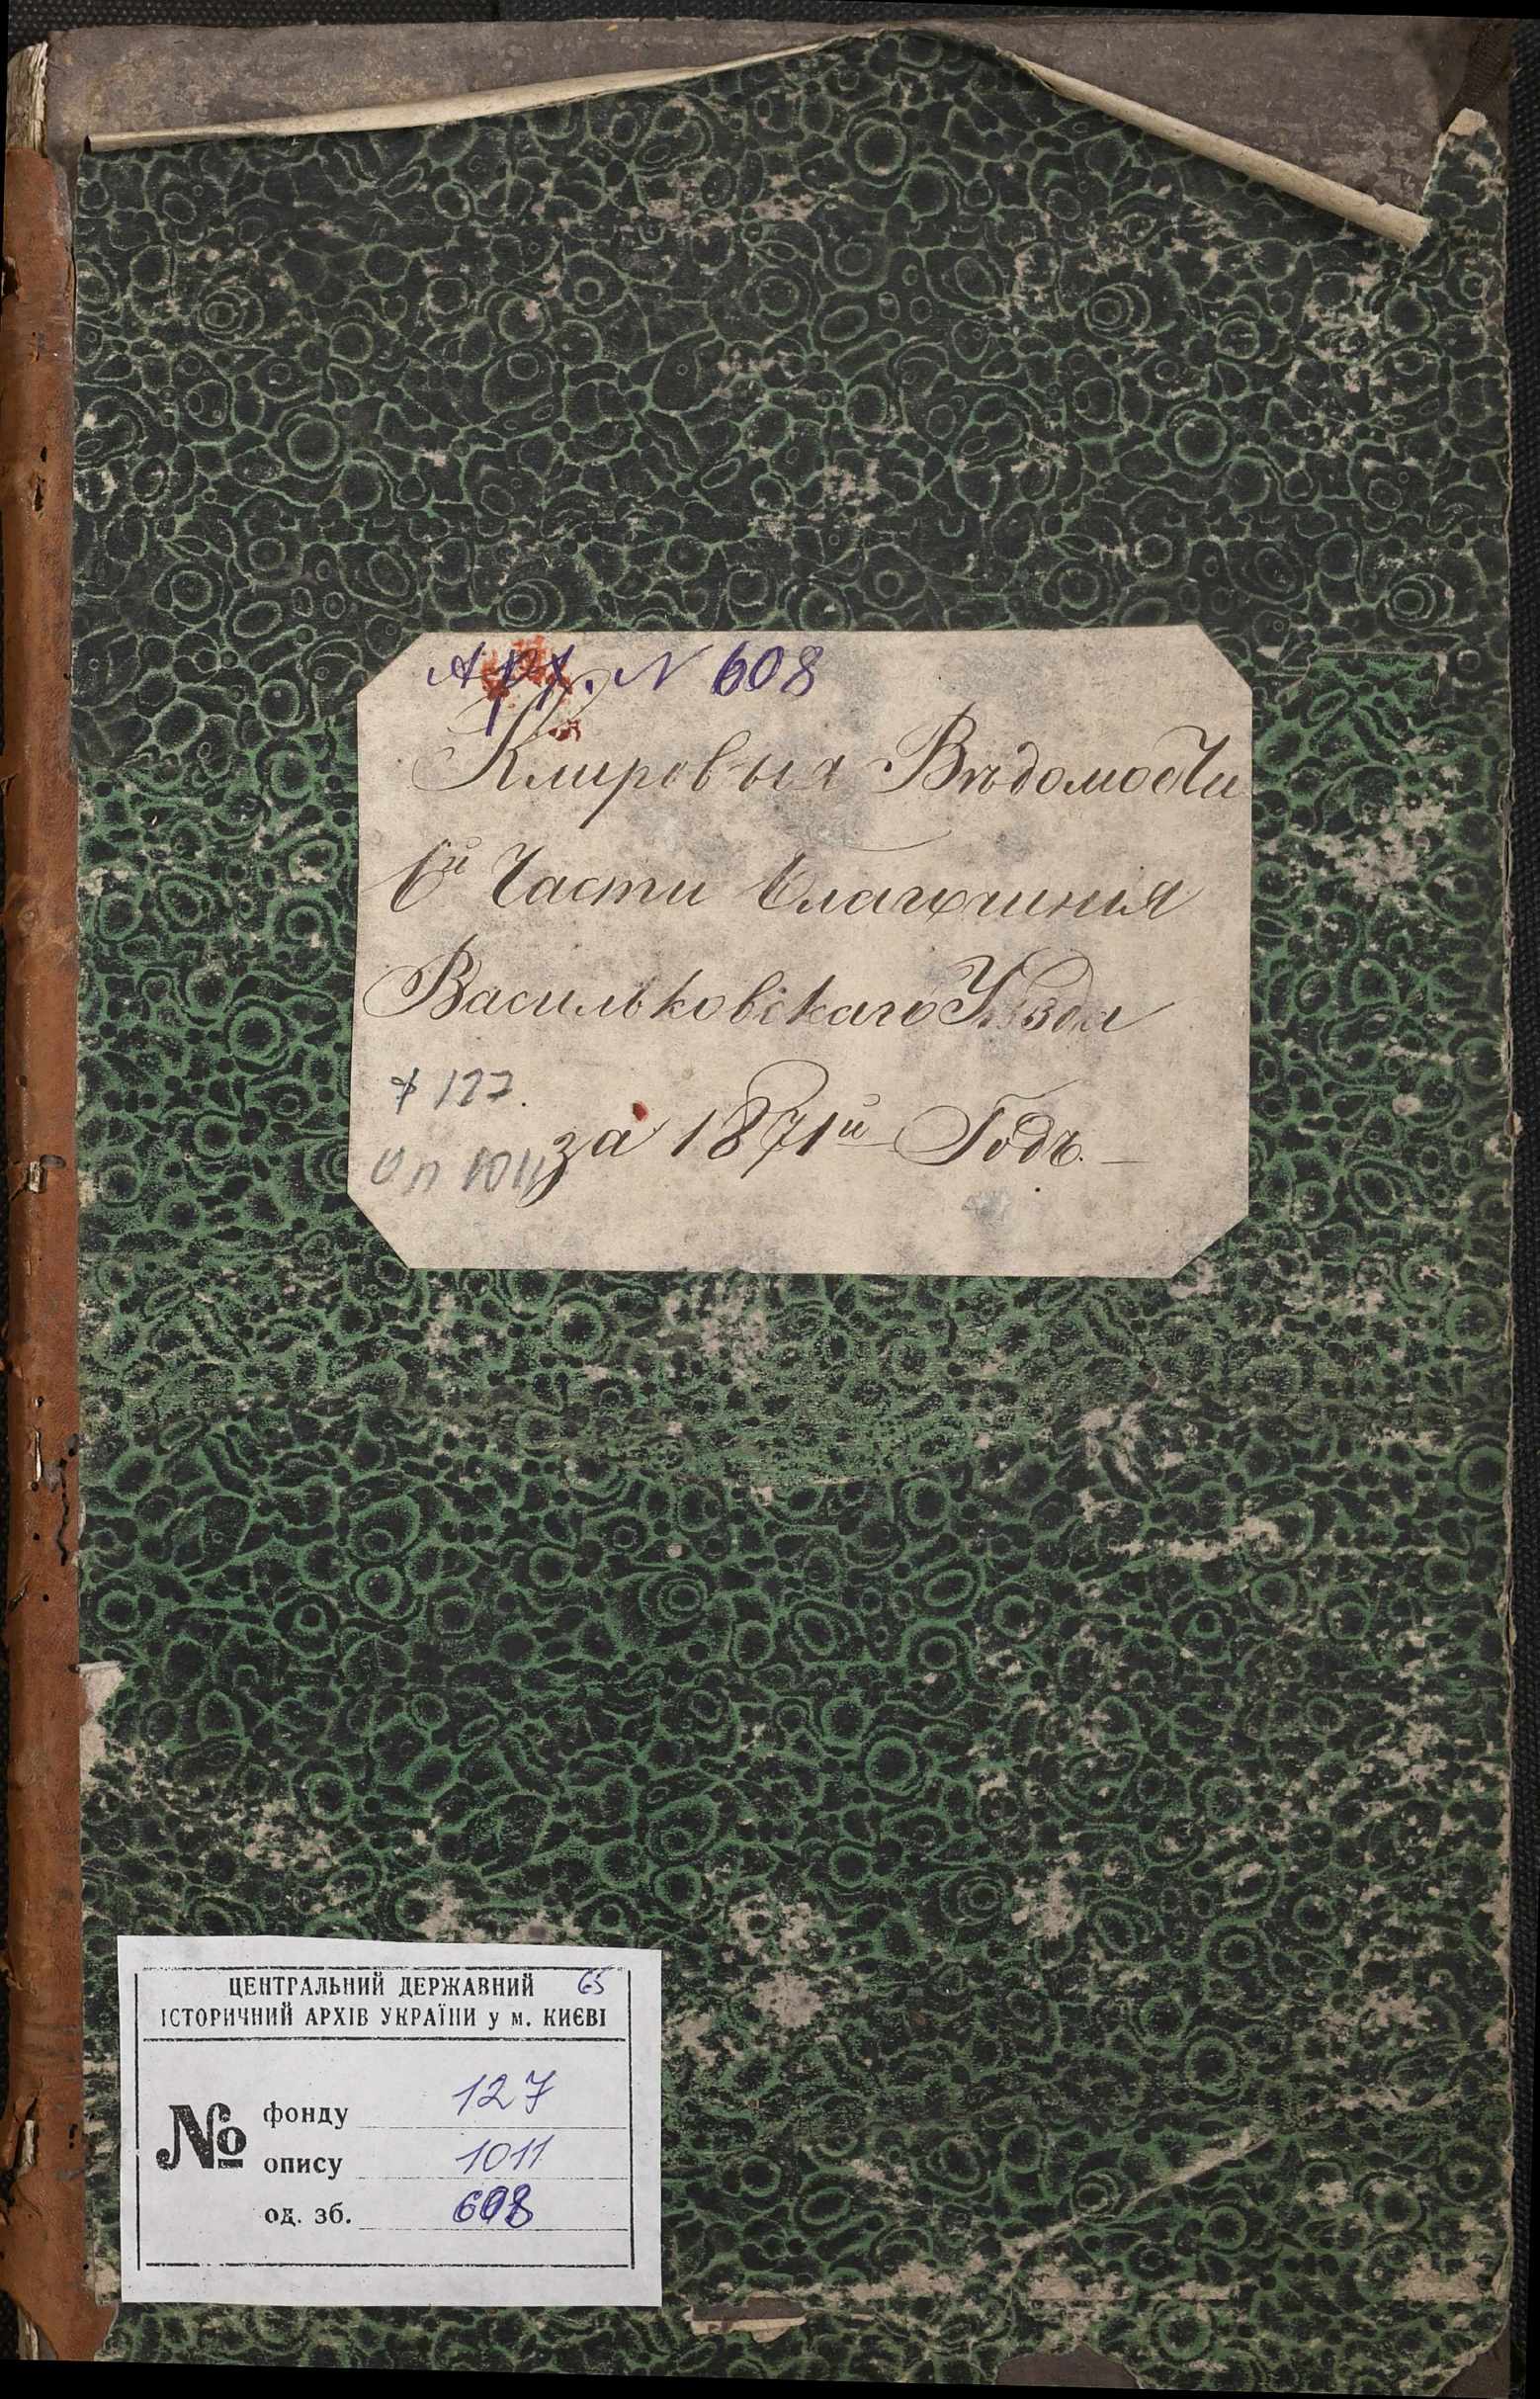 Арх. N 608
Клировыя Вѣдомости
6й Части Благочинія
Васильковскаго Уѣзда
ф 127.
за 1871й Годъ.
Оп 1011
ЦЕНТРАЛЬНИЙ ДЕРЖАВНИЙ 65
ІСТОРИЧНИЙ АРХІВ УКРАЇНИ у м. КИЄВІ
№
фонду 127
опису 1011
од. зб. 608